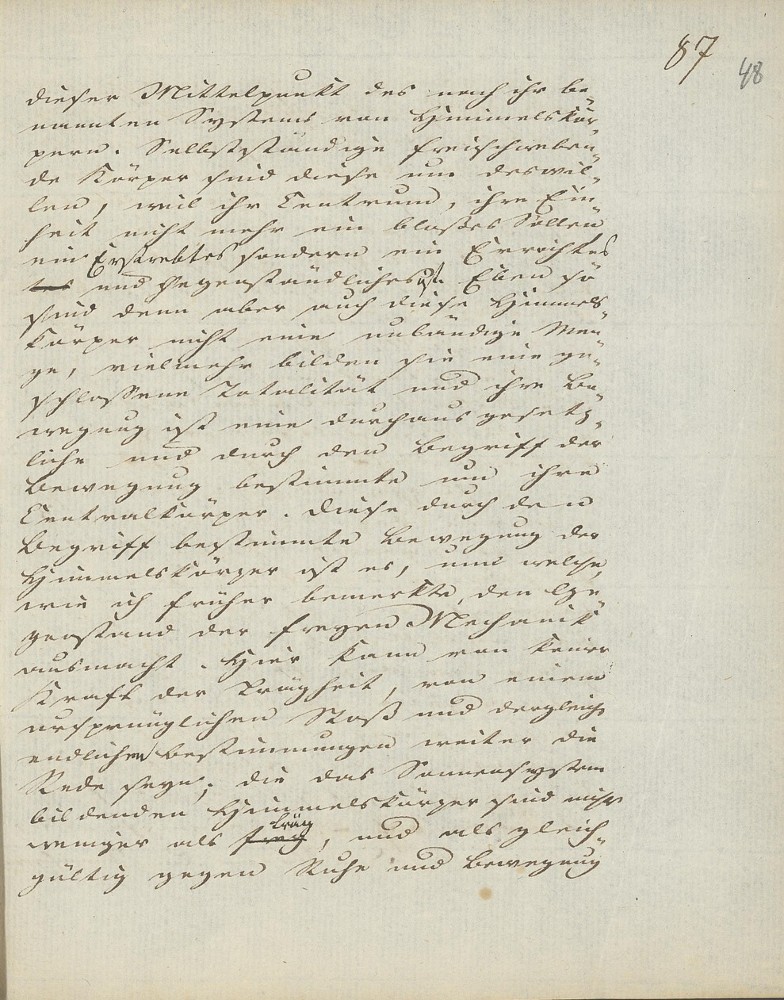 87
48
dieser Mittelpunkt des nach ihr be-
nannten Systems von Himmelskör-
pern. Selbstständige freischweben-
de Körper sind diese um deswil-
len, weil ihr Centrum, ihre Ein-
heit nicht mehr ein bloßes Sollen
ein Erstrebtes sondern ein Erreichtes
tes und Gegenständliches ist. Eben so
sind denn aber auch diese Himmels-
körper nicht eine unbändige Men-
ge, vielmehr bilden sie eine ge-
schlossene Totalität und ihre Be-
wegung ist eine durchaus gesetz-
liche und durch den Begriff der
Bewegung bestimmte um ihre
Centralkörper. Diese durch den
Begriff bestimmte Bewegung der
Himmelskörper ist es, und welche,
wie ich früher bemerkte, den Ge-
genstand der freyen Mechanik
ausmacht. Hier kann von keiner
Kraft der Trägheit, von einem
ursprünglichen Stoß und dergleichen
endlichen Bestimmungen weiter die
Rede seyn; die das Sonnensystem
bildenden Himmelskörper sind nichts
weniger als träg frey, und als gleich-
gültig gegen Ruhe und Bewegung